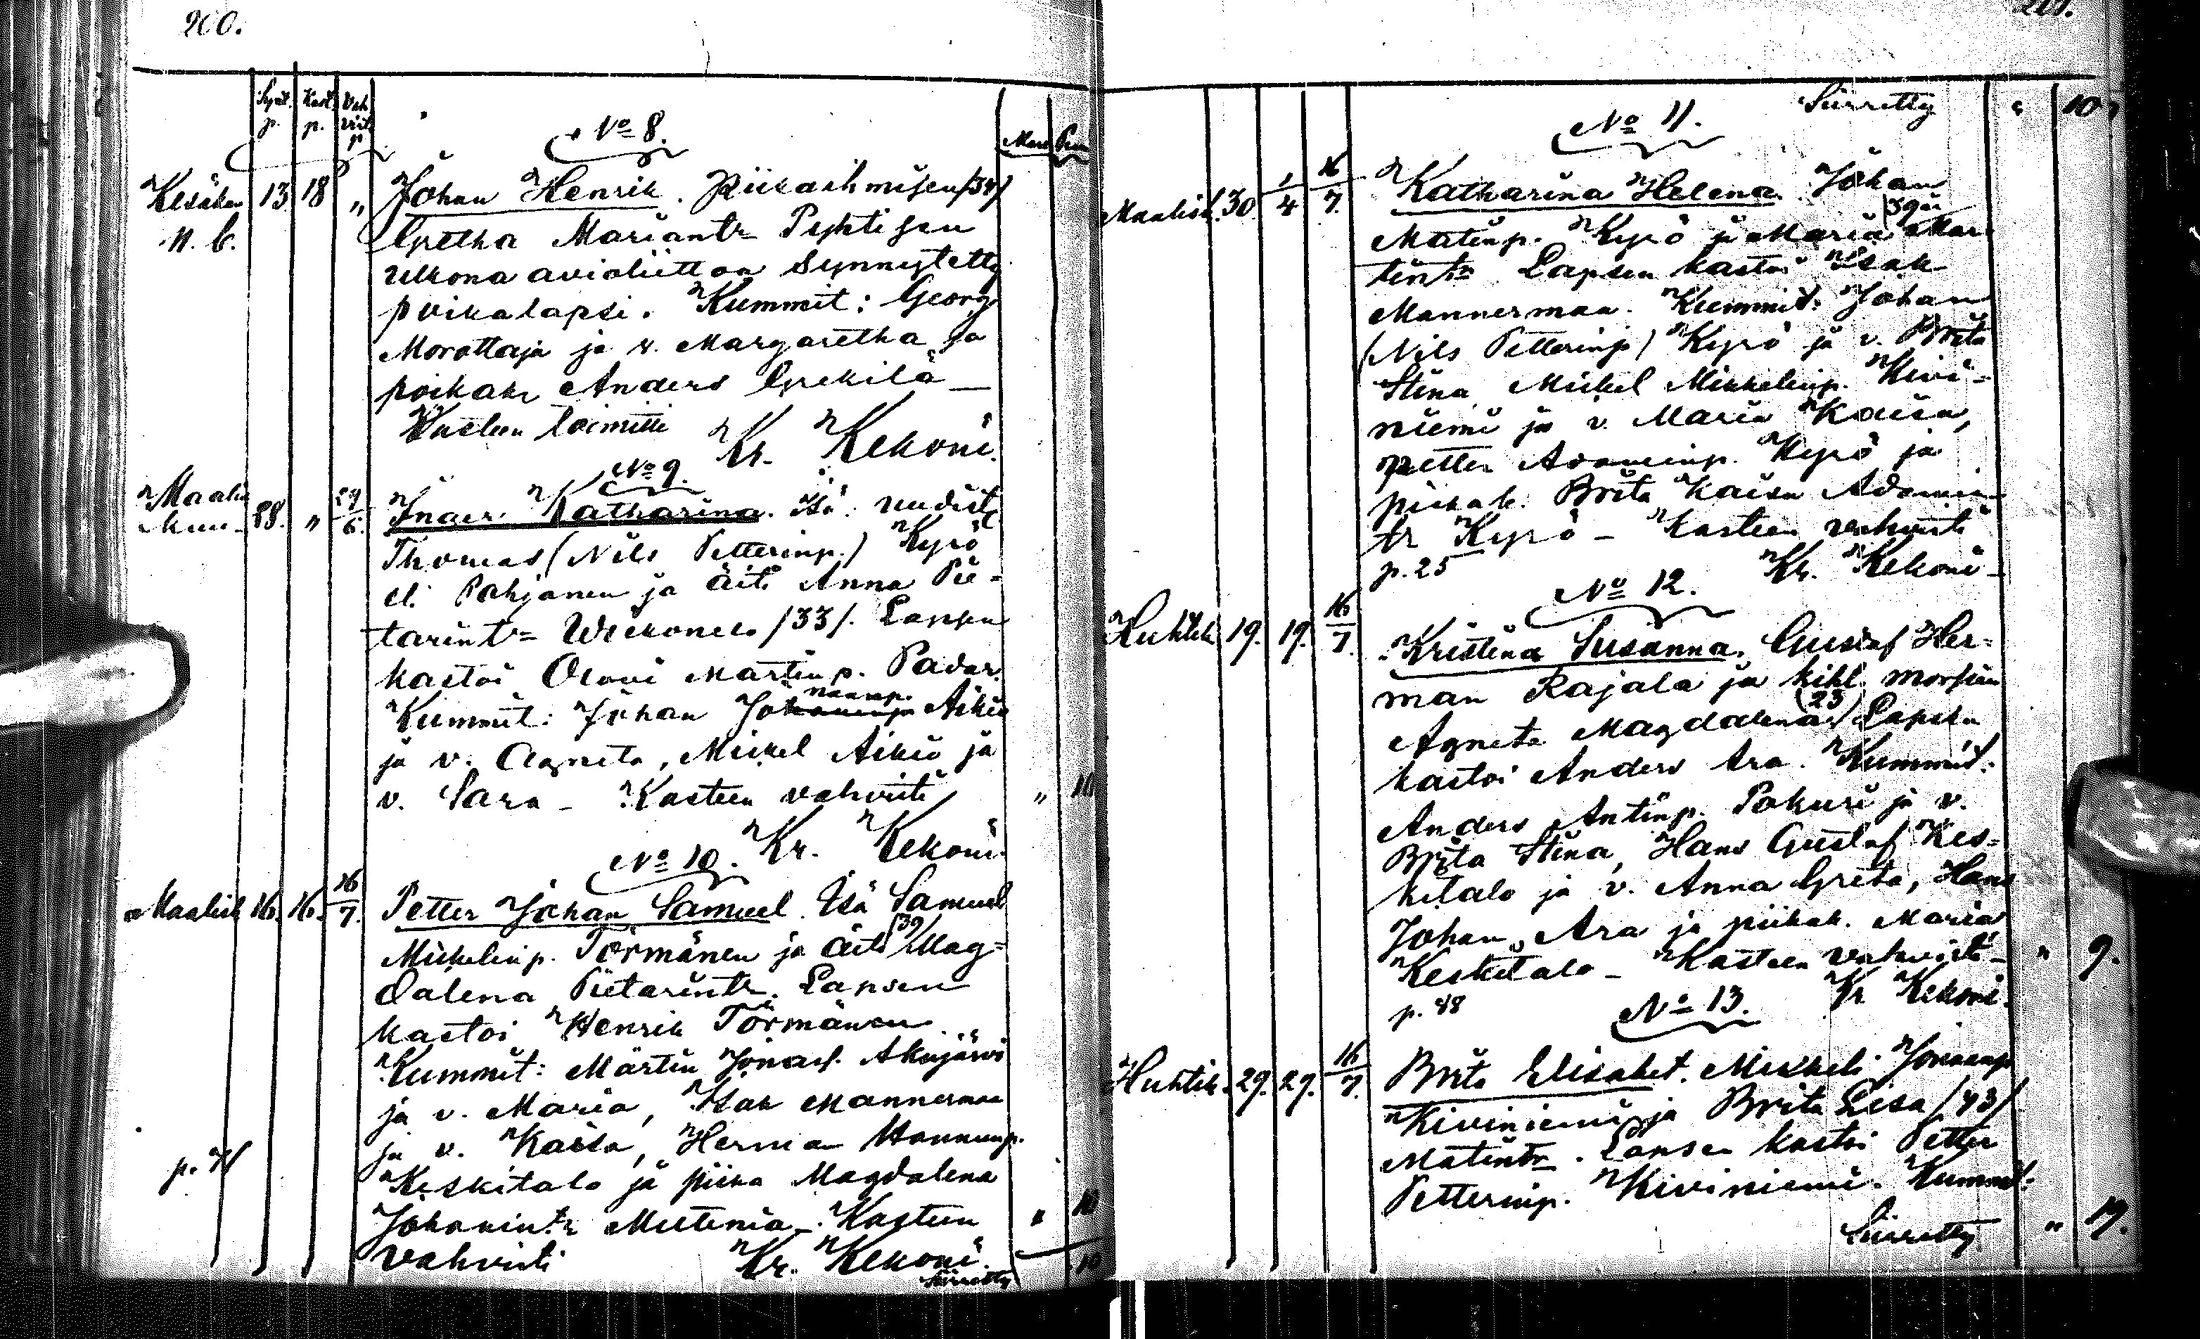 200.
Synt. p.
Kast. p.
Vah vist. p
No 8.
Mark Pen
Kesäkuu 13. 18 „ Johan Henrik. Piikaihmisen /34/
N. b. Gretha Mariantr
ulkona avioliitton synnytetty
poikalapsi. Kummit: Georg
Morottaja ja v. Margaretha ja
poikak. Anders Grekilä —
Kasteen toimitti Kr. Kekoni.
No 9.
Maalis kuu 28. „ 24/6. Inger Katharina. Isä: uudist.
Thomas (Nils Petterinp.) Kyrö
el. Pohjanen ja äiti Anna Pie-
tarintr /33/. Lapsen
kastoi Olovi Martinp. Padar.
Kummit: Johan naanp. Aikio
ja v. Agneta, Mickel Aikio ja
v. Sara — Kasteen vahvisti „ 10
Kr. Kekoni.
No 10.
Maalisk 16. 16. 16/7. Petter Johan Samuel. Isä Samuel
Mickelinp. Törmänen ja äiti /39/ Mag-
dalena Pietarintr. Lapsen
kastoi Henrik Törmänen.
Kummit: Martin Akujärvi
ja v. Maria, Isak Mannermaa
ja v. Kaisa, Herman Hannunp.
Keskitalo ja piika Magdalena
Johanintr Mutenia — Kasteen „ 10
vahvisti Kr. Kekoni.
Siirretty 10
Siirretty „ 10
No 11.
Maalisk. 30 1/4 16/7. Katharina Helena. Johan
Matinp. Kyrö ja Maria Mar-
tintr Lapsen kastoi Isak
Mannermaa. Kummit: Johan
(Nils Petterinp) Kyrö ja v. Brita
Stina, Mickel Mikkelinp. Kivi-
niemi ja v. Maria Kaisa,
Petter Adaminp. Kyrö ja
piikak. Brita Kaisa Adamin-
tr Kyrö — Kasteen vahvisti
p. 25 Kr. Kekoni —
No 12.
Huhtik 19. 19. 16/7. Kristina Susanna. Gustaf Her-
man Rajala ja kihl. morsian
Agneta Magdalena (23) Lapsen
kastoi Anders Ara. Kummit:
Anders Antinp. Pokuri ja v.
Brita Stina, Hans Gustaf Kes-
kitalo ja v. Anna Greta, Hans
Johan Ara ja piikak. Maria
Keskitalo — Kasteen vahvisti — „ 9.
p. 48 Kr Kekoni.
No 13.
Huhtik. 29. 29. 16/7. Brita Elisabet. Mikkeli
Kiviniemi ja Brita Lisa /43/
Matintr. Lapsen kastoi Petter
Petterinp. Kiviniemi. Kummit:
Siirretty „ 19.